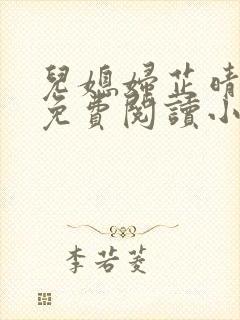 兒媳婦芷晴
免費閱讀小
李若菱